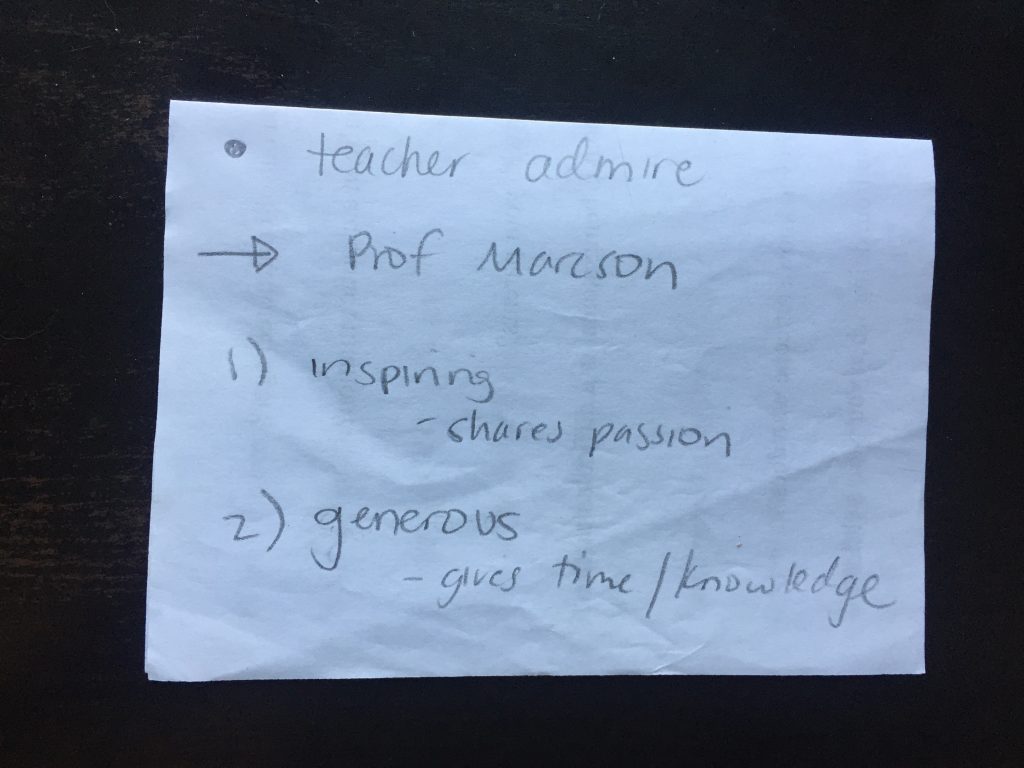 • teacher admire
→ Prof Marcson
1) inspiring
- shares passion
2) generous
- gives time / knowledge